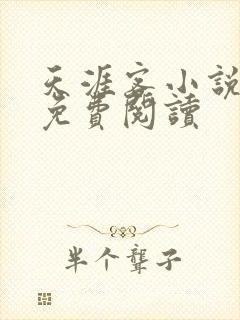 天涯客小說
免費閱讀
半个聾子